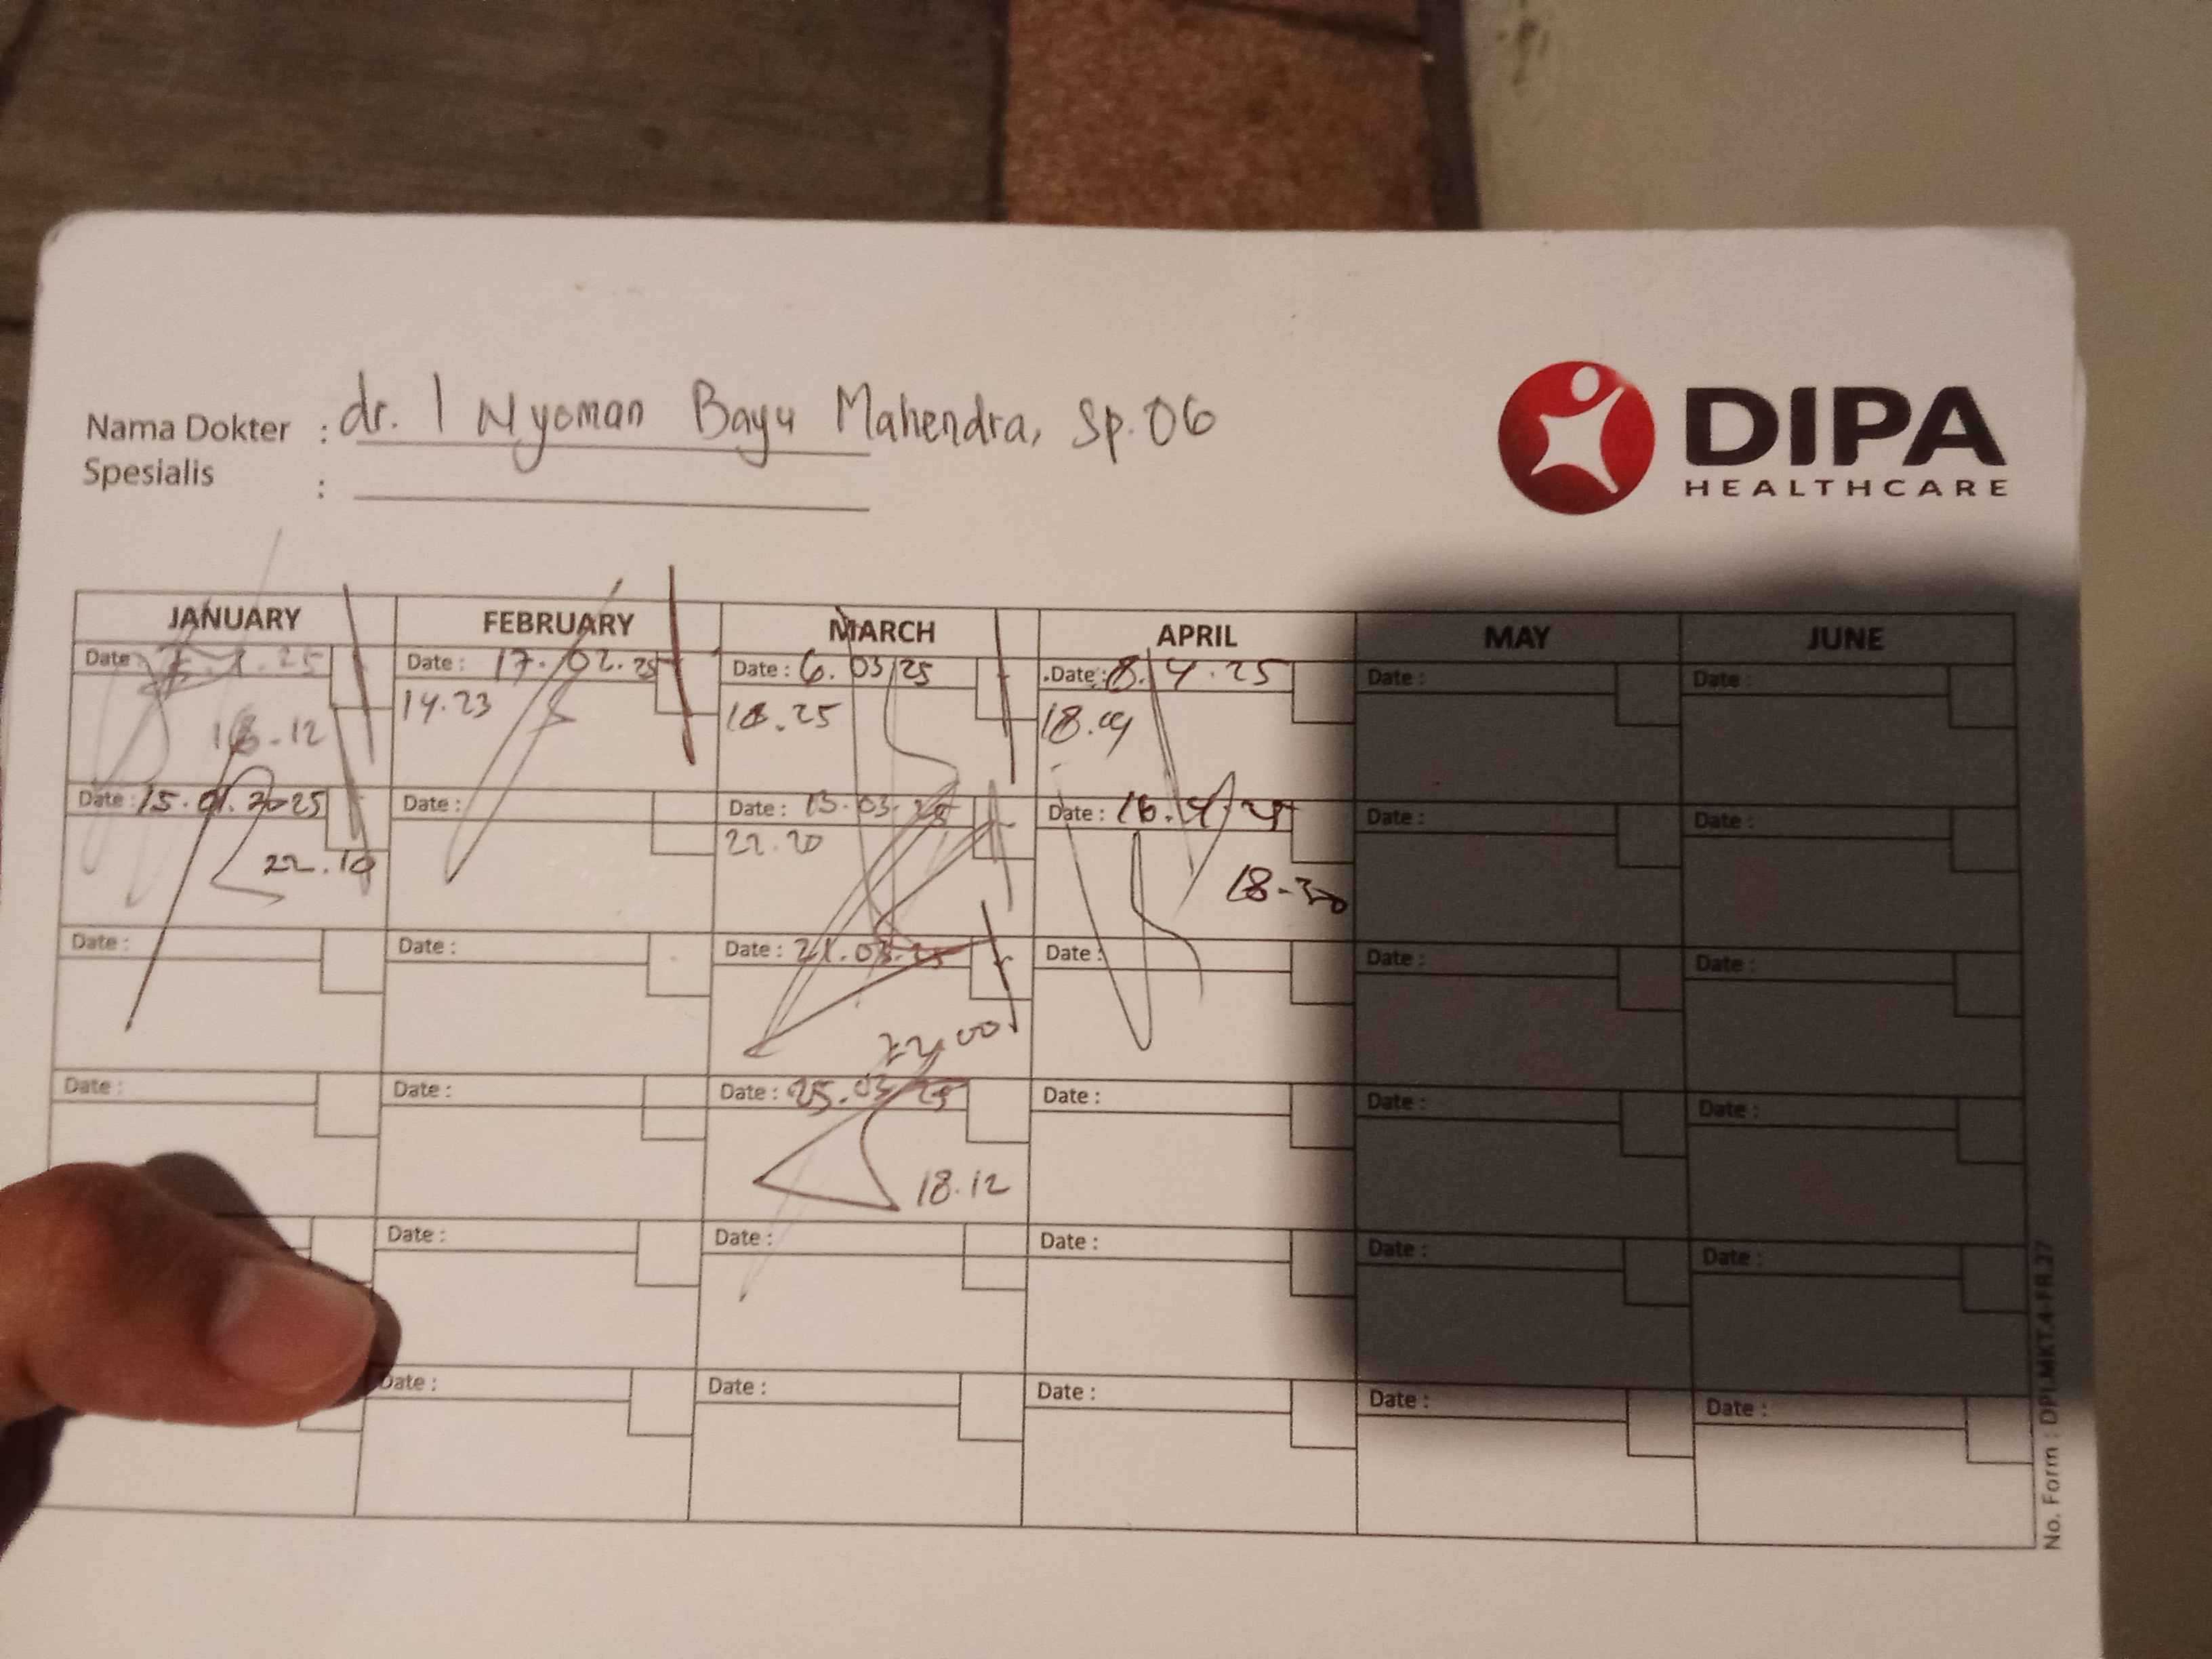 Nama Dokter : dr. I Nyoman Bayu Mahendra, Sp.OG
Spesialis :
DIPA
HEALTHCARE
JANUARY FEBRUARY MARCH APRIL MAY JUNE
Date : Date : 17.02.25 Date : 6.03.25 Date : 8.4.25 Date : Date :
18.12 14.23 18.25 18.09
Date : 15.01.2025 Date : Date : 13.03.25 Date : 16.4.25 Date : Date :
22.10 22.20 18-30
Date : Date : Date : 21.03.25 Date : Date : Date :
22.00
Date : Date : Date : 25.03.25 Date : Date : Date :
18.12
Date : Date : Date : Date : Date :
Date : Date : Date : Date : Date :
No. Form : DPI.MKT.4-FR.37